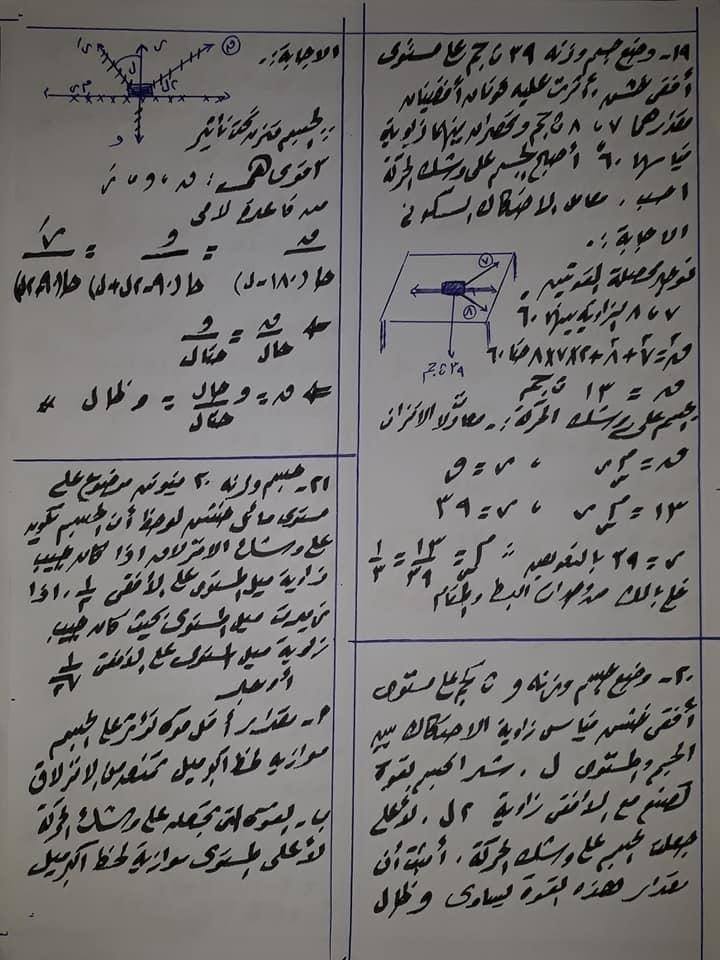 ١٩- وضع جسم وزنه ٣٩ ث جم على مستوى
أفقى خشن. أثرت عليه قوتان أفقيتان
مقدارهما ٧، ٨ ث جم وتحصران بينهما زاوية
قياسها ٦٠° أصبح الجسم على وشك الحركة
احسب. معامل الاحتكاك السكونى
الاجابة:.
نوجد محصلة القوتين
٧، ٨ الزاوية بينهما ٦٠
ق٢ = ٧٢ + ٨٢ + ٢×٧×٨ حتا ٦٠
ق = ١٣ ث جم
٧
٨
٣٩ ث جم
الجسم على وشك الحركة:. معادلتا الاتزان
ق = م س ر ، ر = و
١٣ = م س ر ، ر = ٣٩
ر = ٣٩ بالتعويض :: م س = ١٣/٣٩ = ١/٣
خلى بالك من وحدات البسط والمقام
٢٠- وضع جسم وزنه و ث كجم على مستوى
أفقى خشن قياس زاوية الاحتكاك بين
الجسم والمستوى ل. شد الجسم بقوة
تصنع مع الأفقى زاوية ٢ل. لأعلى
جعلت الجسم على وشك الحركة. أثبت أن
مقدار هذه القوة يساوى و ظا ل
الاجابة:.
رَ
ر
ق
ل
٢ل
م س ر
و
:: الجسم متزن تحت تأثير
٣ قوى هى: ق، و، رَ
من قاعدة لامى
ق/حا (١٨٠-ل) = و/حا (٩٠-٢ل+ل) = رَ/حا(٩٠+٢ل)
⇐ ق/حال = و/حتال
⇐ ق = و حال/حتال = و ظال #
٢١- جسم وزنه ٣٠ نيوتن موضوع على
مستوى مائل خشن لوحظ أن الجسم يكون
على وشك الانزلاق اذا كان جيب
زاوية ميل المستوى على الأفقى ١/٢. اذا
زيدت ميل المستوى بحيث كان جيب
زاوية ميل المستوى على الأفقى
أوجد
٢- مقدار أقل قوة تؤثر على الجسم
موازية لخط أكبر ميل تمنعه من الانزلاق
ب- القوة التى تجعله على وشك الحركة
لأعلى المستوى موازية لخط أكبر ميل